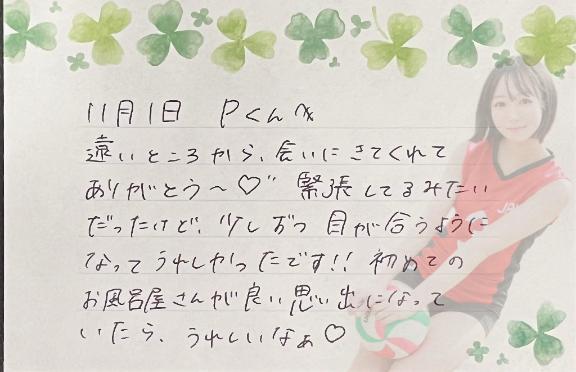 11月1日 Pくんへ
遠いところから、会いにきてくれて
ありがとう〜♡" 緊張してるみたい
だったけど、少しずつ目が合うように
なってうれしかったです!! 初めての
お風呂屋さんが良い思い出になって
いたら、うれしいなぁ♡